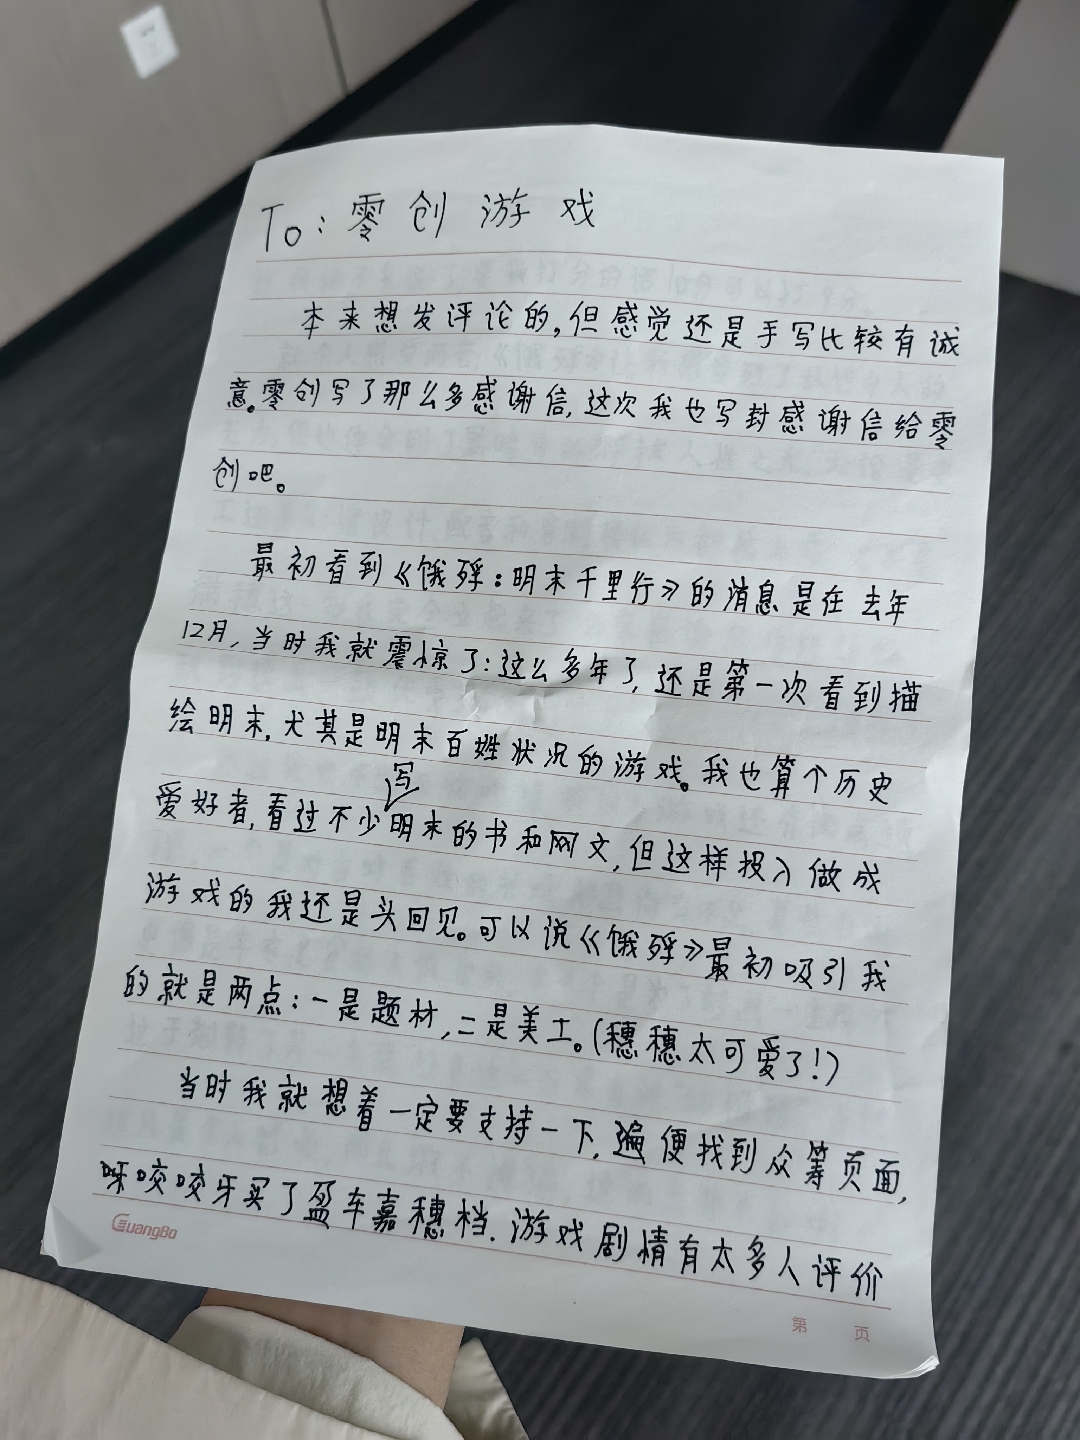 To: 零创游戏
本来想发评论的,但感觉还是手写比较有诚
意。零创写了那么多感谢信,这次我也写封感谢信给零
创吧。
最初看到《饿殍:明末千里行》的消息是在去年
12月,当时我就震惊了:这么多年了,还是第一次看到描
绘明末,尤其是明末百姓状况的游戏。我也算个历史
爱好者,看过不少写明末的书和网文,但这样投入做成
游戏的我还是头回见。可以说《饿殍》最初吸引我
的就是两点:一是题材,二是美工。(穗穗太可爱了!)
当时我就想着一定要支持一下,遍便找到众筹页面,
呀咬咬牙买了盈车嘉穗档.游戏剧情有太多人评价
GuangBo
第 页